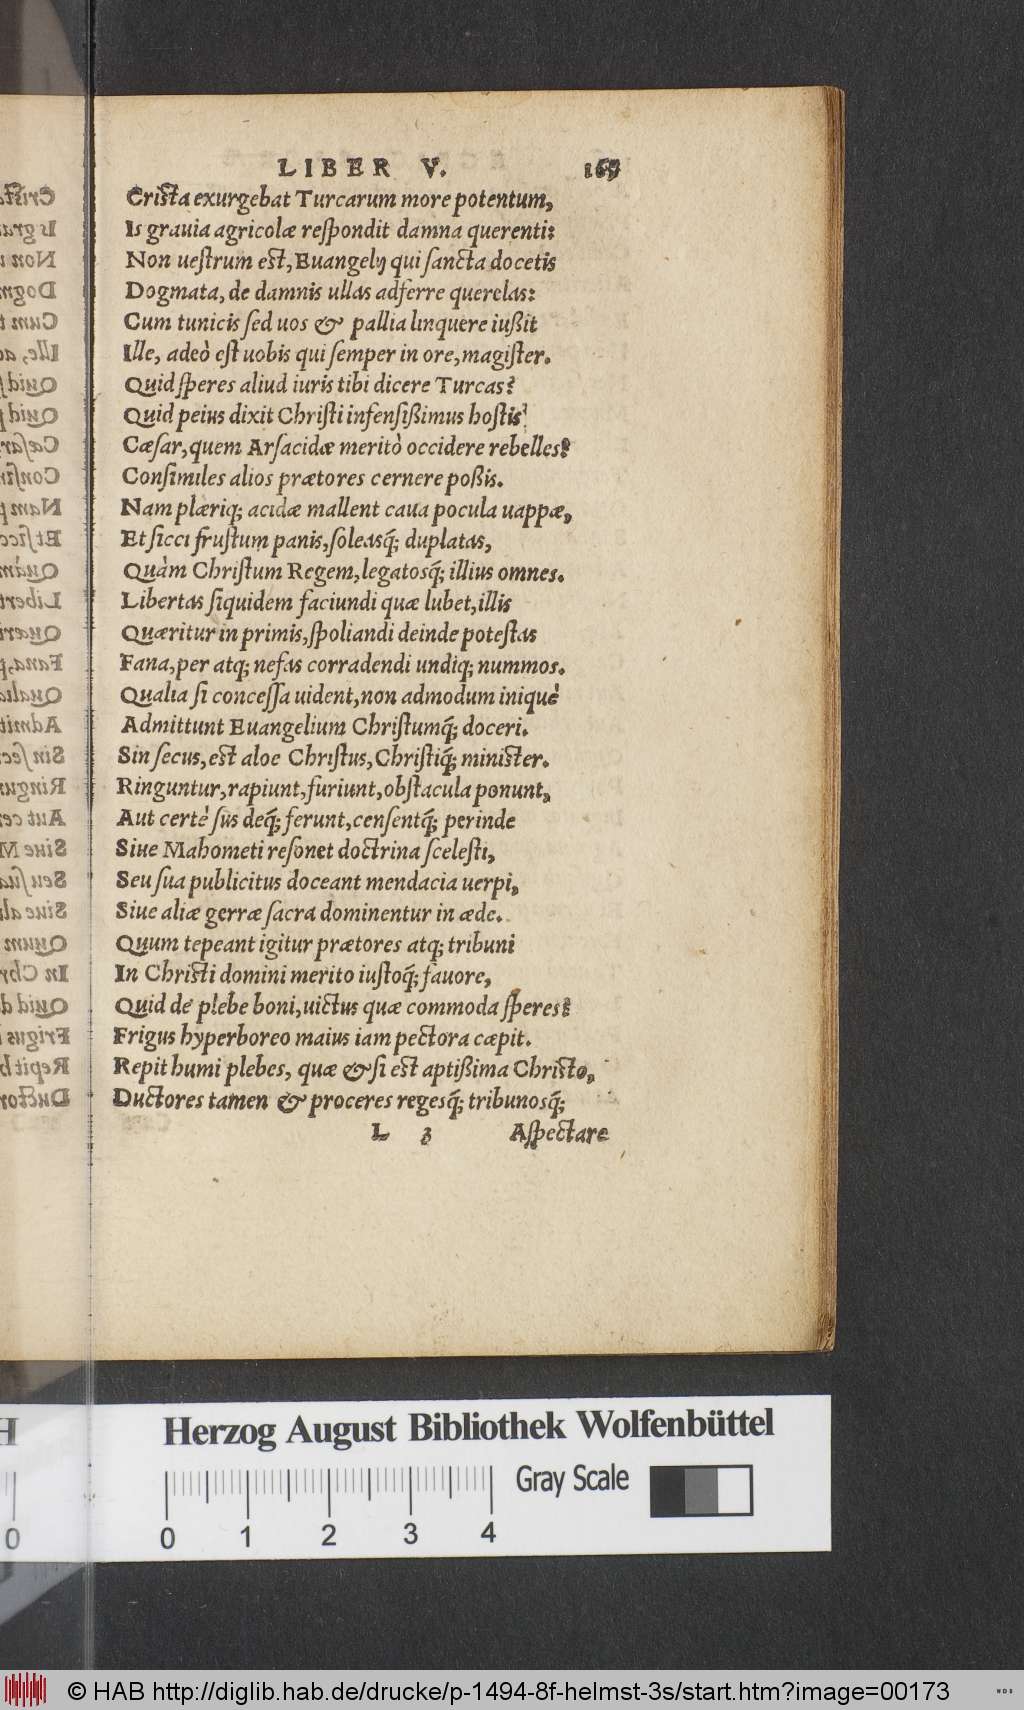 LIBER V. 169
Crista exurgebat Turcarum more potentum,
Is grauia agricolæ reſpondit damna querenti:
Non ueſtrum eſt, Euangelij qui ſancta docetis
Dogmata, de damnis ullas adferre querelas:
Cum tunicis ſed uos & pallia linquere iußit
Ille, adeò eſt uobis qui ſemper in ore, magiſter.
Quid ſperes aliud iuris tibi dicere Turcas?
Quid peius dixit Chriſti infenſißimus hoſtis?
Cæſar, quem Arſacidæ meritò occidere rebelles?
Conſimiles alios prætores cernere poßis.
Nam plæriq; acidæ mallent caua pocula uappæ,
Et ſicci fruſtum panis, ſoleasq́; duplatas,
Quàm Chriſtum Regem, legatosq́; illius omnes.
Libertas ſiquidem faciundi quæ lubet, illis
Quæritur in primis, ſpoliandi deinde poteſtas
Fana, per atq; nefas corradendi undiq; nummos.
Qualia ſi conceſſa uident, non admodum iniquè
Admittunt Euangelium Chriſtumq́; doceri.
Sin ſecus, eſt aloe Chriſtus, Chriſtiq́; miniſter.
Ringuntur, rapiunt, furiunt, obſtacula ponunt,
Aut certè ſus deq́; ferunt, cenſentq́; perinde
Siue Mahometi reſonet doctrina ſceleſti,
Seu ſua publicitus doceant mendacia uerpi,
Siue aliæ gerræ ſacra dominentur in æde.
Quum tepeant igitur prætores atq; tribuni
In Chriſti domini merito iuſtoq́; fauore,
Quid de plebe boni, uictus quæ commoda ſperes?
Frigus hyperboreo maius iam pectora cæpit.
Repit humi plebes, quæ & ſi eſt aptißima Chriſto,
Ductores tamen & proceres regesq́; tribunosq́;
L 3 Aſpectare
Herzog August Bibliothek Wolfenbüttel
Gray Scale
0 1 2 3 4
0
© HAB http://diglib.hab.de/drucke/p-1494-8f-helmst-3s/start.htm?image=00173